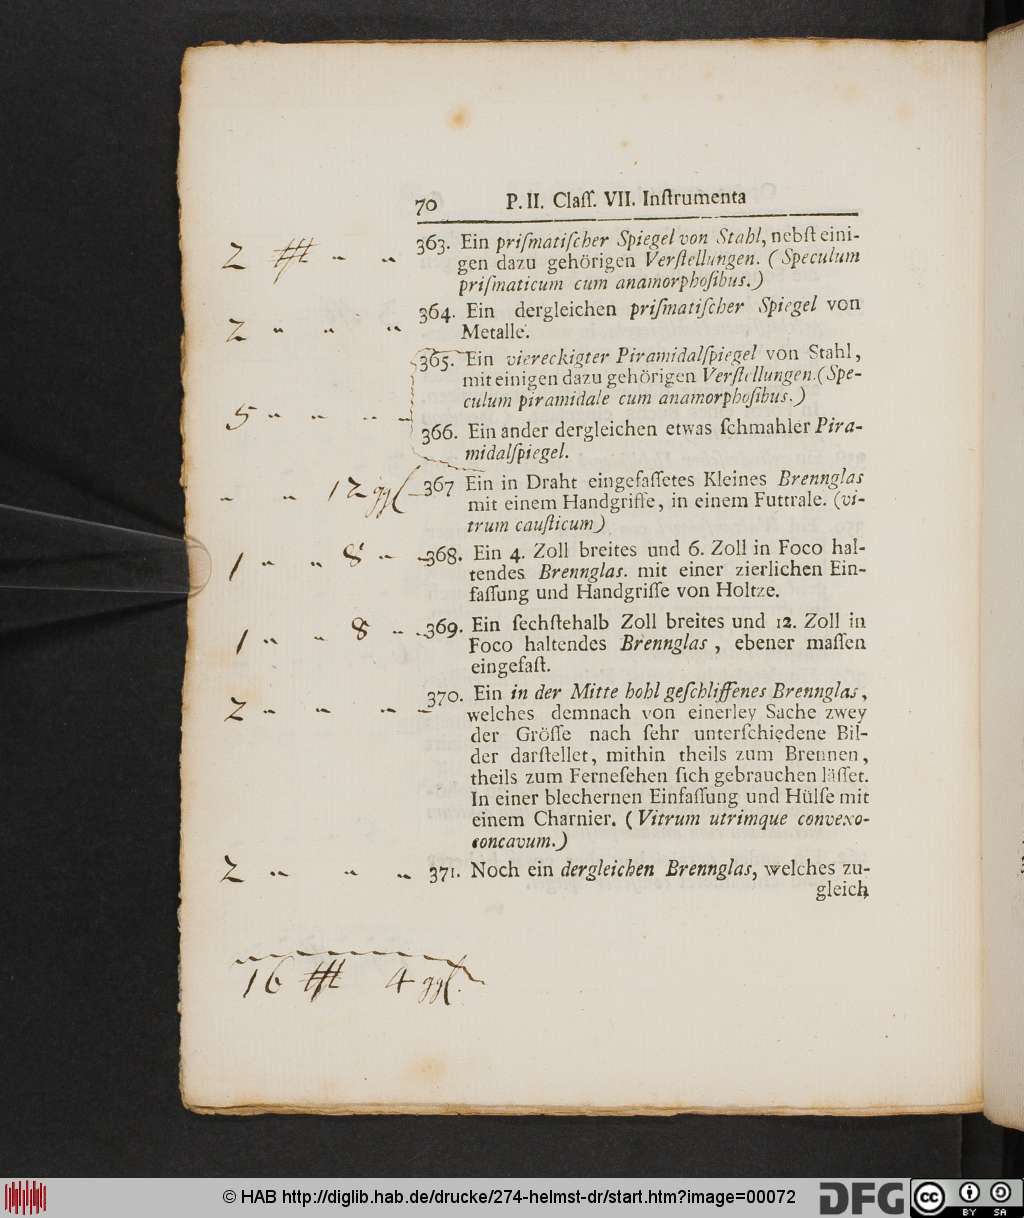 70 P. II. Claſſ. VII. Inſtrumenta
2 ₰ „ „ 363. Ein priſmatiſcher Spiegel von Stahl, nebſt eini-
gen dazu gehörigen Verſtellungen. (Speculum
priſmaticum cum anamorphoſibus.)
2 „ „ „ 364. Ein dergleichen priſmatiſcher Spiegel von
Metalle.
365. Ein viereckigter Piramidalſpiegel von Stahl,
mit einigen dazu gehörigen Verſtellungen. (Spe-
culum piramidale cum anamorphoſibus.)
5 „ „ „ „
366. Ein ander dergleichen etwas ſchmahler Pira-
midalſpiegel.
„ „ 12 ggl 367 Ein in Draht eingefaſſetes Kleines Brennglas
mit einem Handgriffe, in einem Futtrale. (vi-
trum cauſticum)
1 „ „ 8 „ „ 368. Ein 4. Zoll breites und 6. Zoll in Foco hal-
tendes Brennglas. mit einer zierlichen Ein-
faſſung und Handgriffe von Holtze.
1 „ „ 8 „ „ 369. Ein ſechſtehalb Zoll breites und 12. Zoll in
Foco haltendes Brennglas, ebener maſſen
eingefaſt.
2 „ „ „ „ 370. Ein in der Mitte hohl geſchliffenes Brennglas,
welches demnach von einerley Sache zwey
der Gröſſe nach ſehr unterſchiedene Bil-
der darſtellet, mithin theils zum Brennen,
theils zum Ferneſehen ſich gebrauchen läſſet.
In einer blechernen Einfaſſung und Hülſe mit
einem Charnier. (Vitrum utrimque convexo-
concavum.)
2 „ „ „ 371. Noch ein dergleichen Brennglas, welches zu-
gleich
16 4 ggl.
© HAB http://diglib.hab.de/drucke/274-helmst-dr/start.htm?image=00072
DFG
cc BY SA